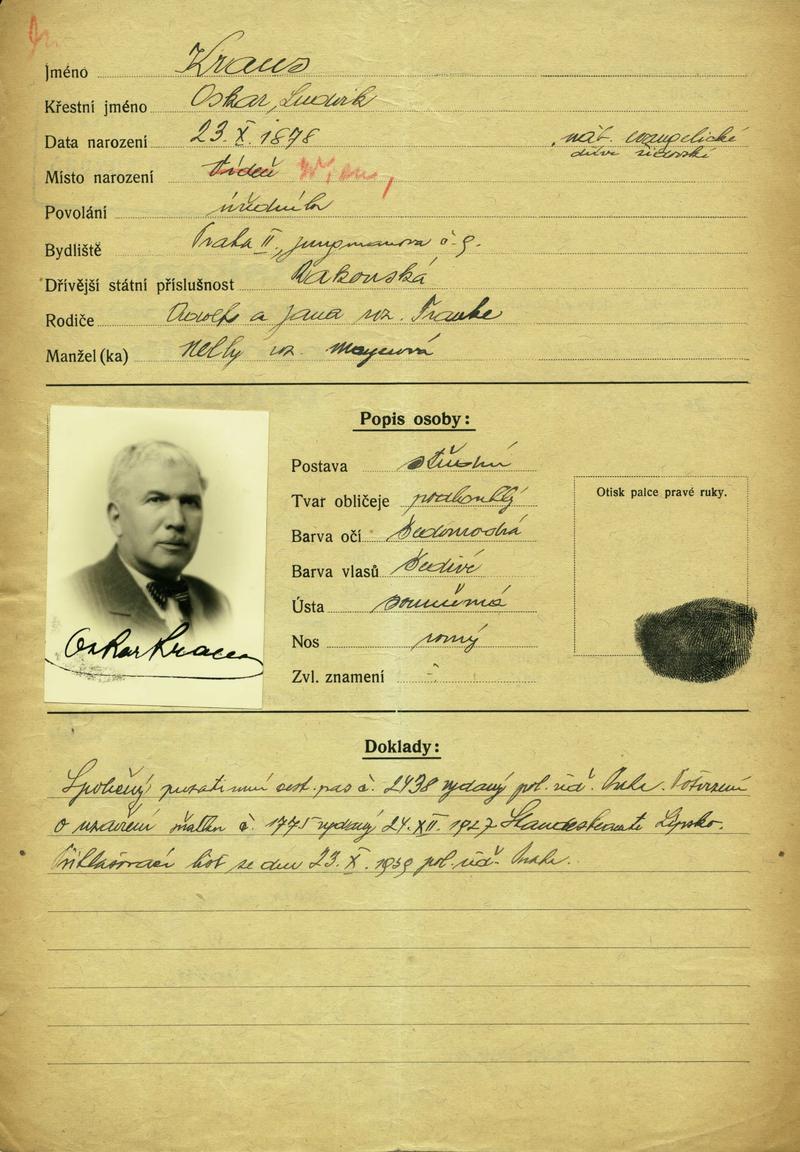 Jméno Kraus
Křestní jméno Oskar, Ludvík
Data narození 23. X. 1878 náb. evangelické
dříve židovské
Místo narození Vídeň Wien,
Povolání úředník
Bydliště Praha II., Jungmanova č. 9.
Dřívější státní příslušnost Rakouská
Rodiče Adolf a Jana roz.
Manžel (ka) Nelly roz.
Popis osoby:
Postava střední
Tvar obličeje podlouhlý
Barva očí šedomodrá
Barva vlasů šedivé
Ústa souměrná
Nos rovný
Zvl. znamení -
Otisk palce pravé ruky.
Oskar Kraus
Doklady:
Společný cest. pas č. 2438 vydaný pol. řed. Praha. Potvrzení
o uzavření sňatku č. 1775 vydaný 24. XII. 1927 Standesbeamte Lipsko.
Přihlašovací list ze dne 23. X. 1939 pol. řed. Praha.